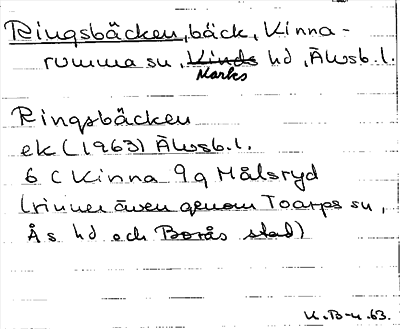 Ringsbäcken, bäck, Kinna-
rumma sn, Kinds hd, Älvsb. l.
Marks
Ringsbäcken
ek (1963) Älvsb. l.
6 C Kinna 9 g Målsryd
(rinner även genom Toarps sn,
Ås hd och Borås stad)
K. B-n. 63.